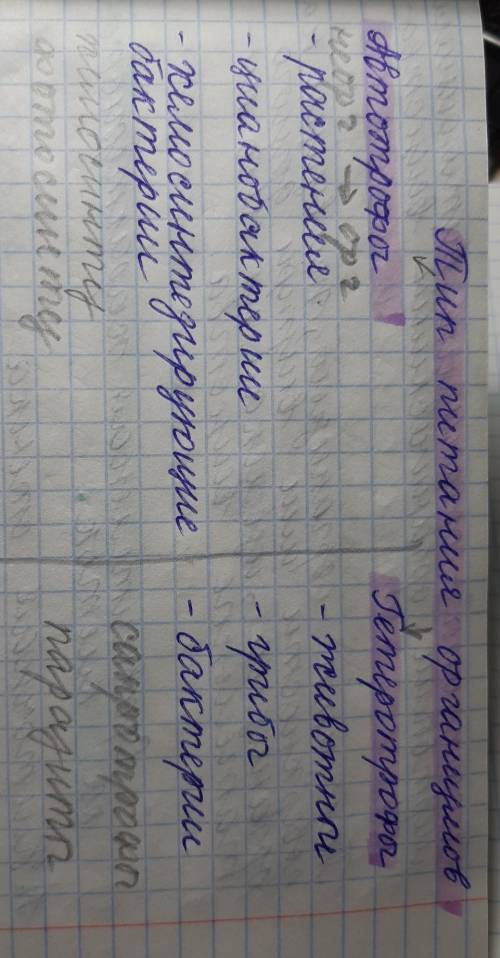 Тип питания организмов
Автотрофы
неорг → орг
- растения
- цианобактерии
- хемосинтезирующие
бактерии
хемосинтез
фотосинтез
Гетеротрофы
- животные
- грибы
- бактерии
сапротрофы
паразиты